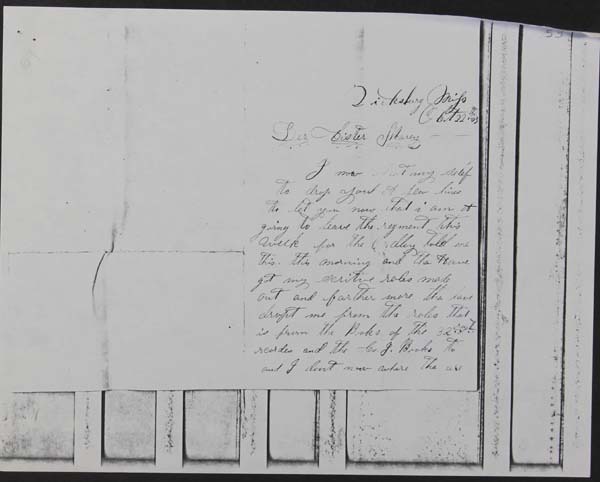 Vicksburg Miss
Oct 22
Der Cister Marey
I now my self
to drop you A few lines
to let you now that i am
going to leave the regment this
week for the told me
this this morning and tha have
got my roles made
out and farther more tha
dropt me from the roles that
is from the Books of the
recordes and the Co J. Books to
and I dont now where tha are